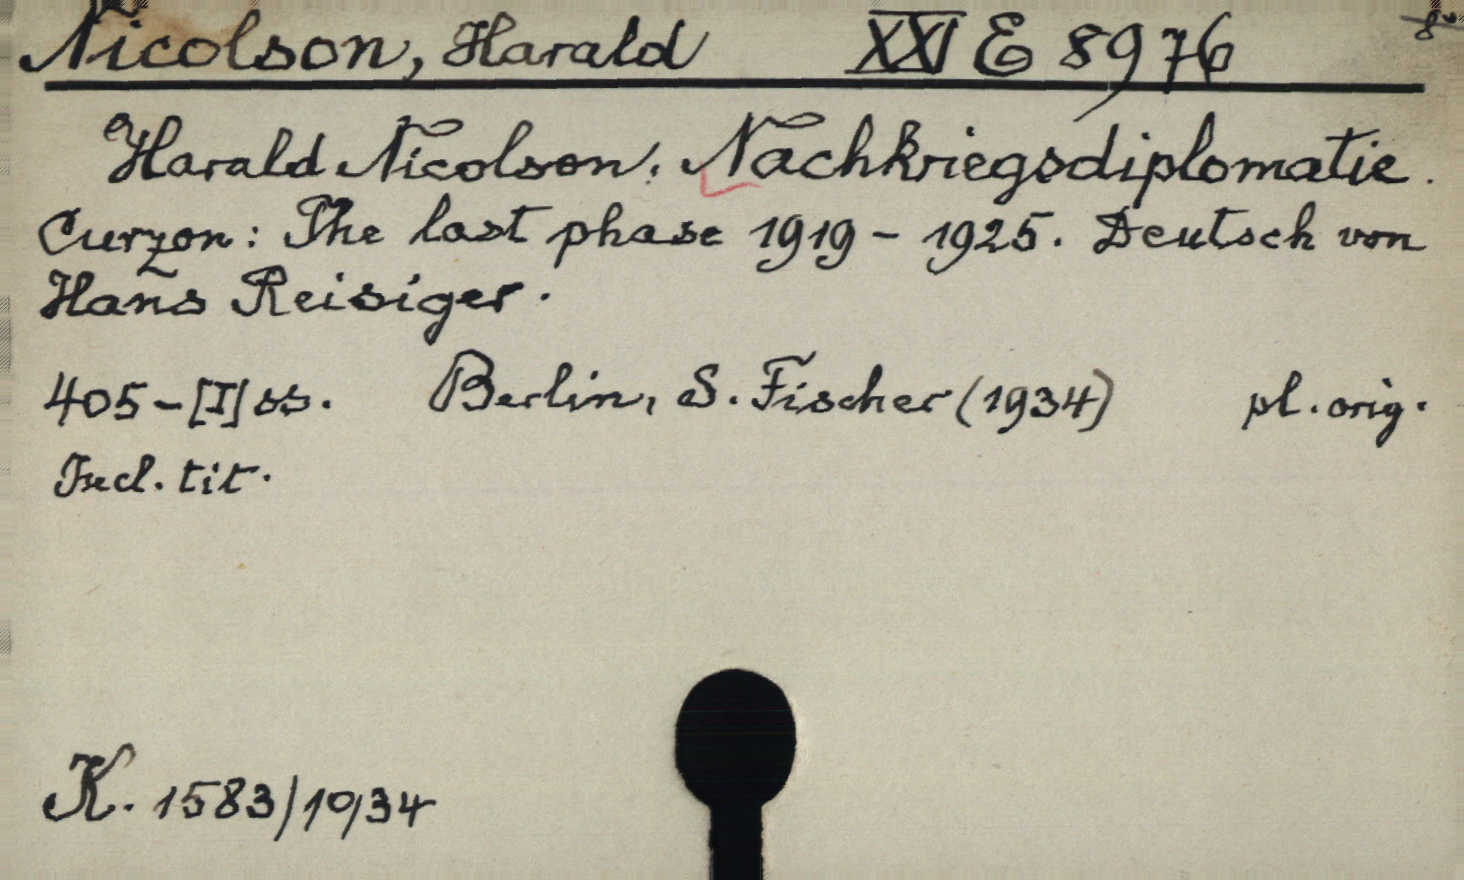 Nicolson, Harald XXI E 8976 8°
Harald Nicolson: Nachkriegsdiplomatie.
Curzon: The last phase 1919 - 1925. Deutsch von
Hans Reisiger.
405-[I] ss. Berlin, S. Fischer (1934) pl. orig.
Incl. tit.
K. 1583/10/34